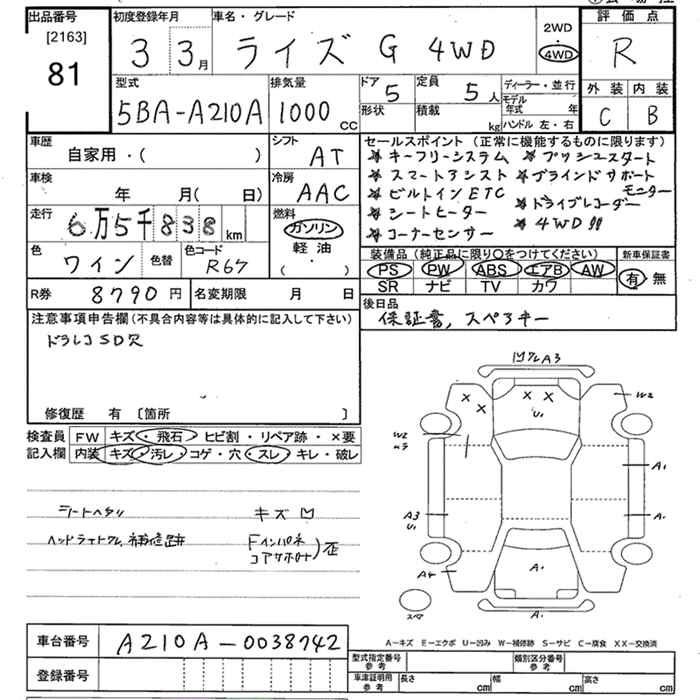 出品番号
[2163]
81
初度登録年月
3 3月
車名・グレード
ライズ G 4WD
2WD
4WD
評価点
R
型式
5BA-A210A
排気量
1000 cc
ドア
5
形状
定員
5人
積載
kg
ディーラー・並行
モデル年式 年
ハンドル 左・右
外装 内装
C B
車歴
自家用・( )
シフト
AT
車検
年 月( 日)
冷房
AAC
走行
6万5千838 km
燃料
ガソリン
軽油
( ・ )
色
ワイン
色替
色コード
R67
R券 8790円
名変期限 月 日
セールスポイント(正常に機能するものに限ります)
★キーフリーシステム ★プッシュスタート
★スマートアシスト ★ブラインドサポートモニター
★ビルトインETC ★ドライブレコーダー
★シートヒーター ★4WD!!
★コーナーセンサー
装備品(純正品に限り○をつけてください)
PS PW ABS エアB AW
SR ナビ TV カワ
新車保証書
有・無
後日品
保証書, スペアキー
注意事項申告欄(不具合内容等は具体的に記入して下さい)
ドラレコSD欠
修復歴 有 [箇所 ]
検査員記入欄
FW キズ・飛石・ヒビ割・リペア跡・×要
内装 キズ・汚レ・コゲ・穴・スレ・キレ・破レ
シートヘタリ
キズ凹
ヘッドライトクム 補修跡
Fインパネ
コアサポート)歪
凹アルA3
W2
U1
W2
A1
A3
U1
A1
A1
A4
A1
スペア
A-キズ E-エクボ U-凹み W-補修跡 S-サビ C-腐食 XX-交換済
車台番号
A210A-0038742
登録番号
型式指定番号 参考
類別区分番号 参考
車庫証明用 参考
長さ cm
幅 cm
高さ cm